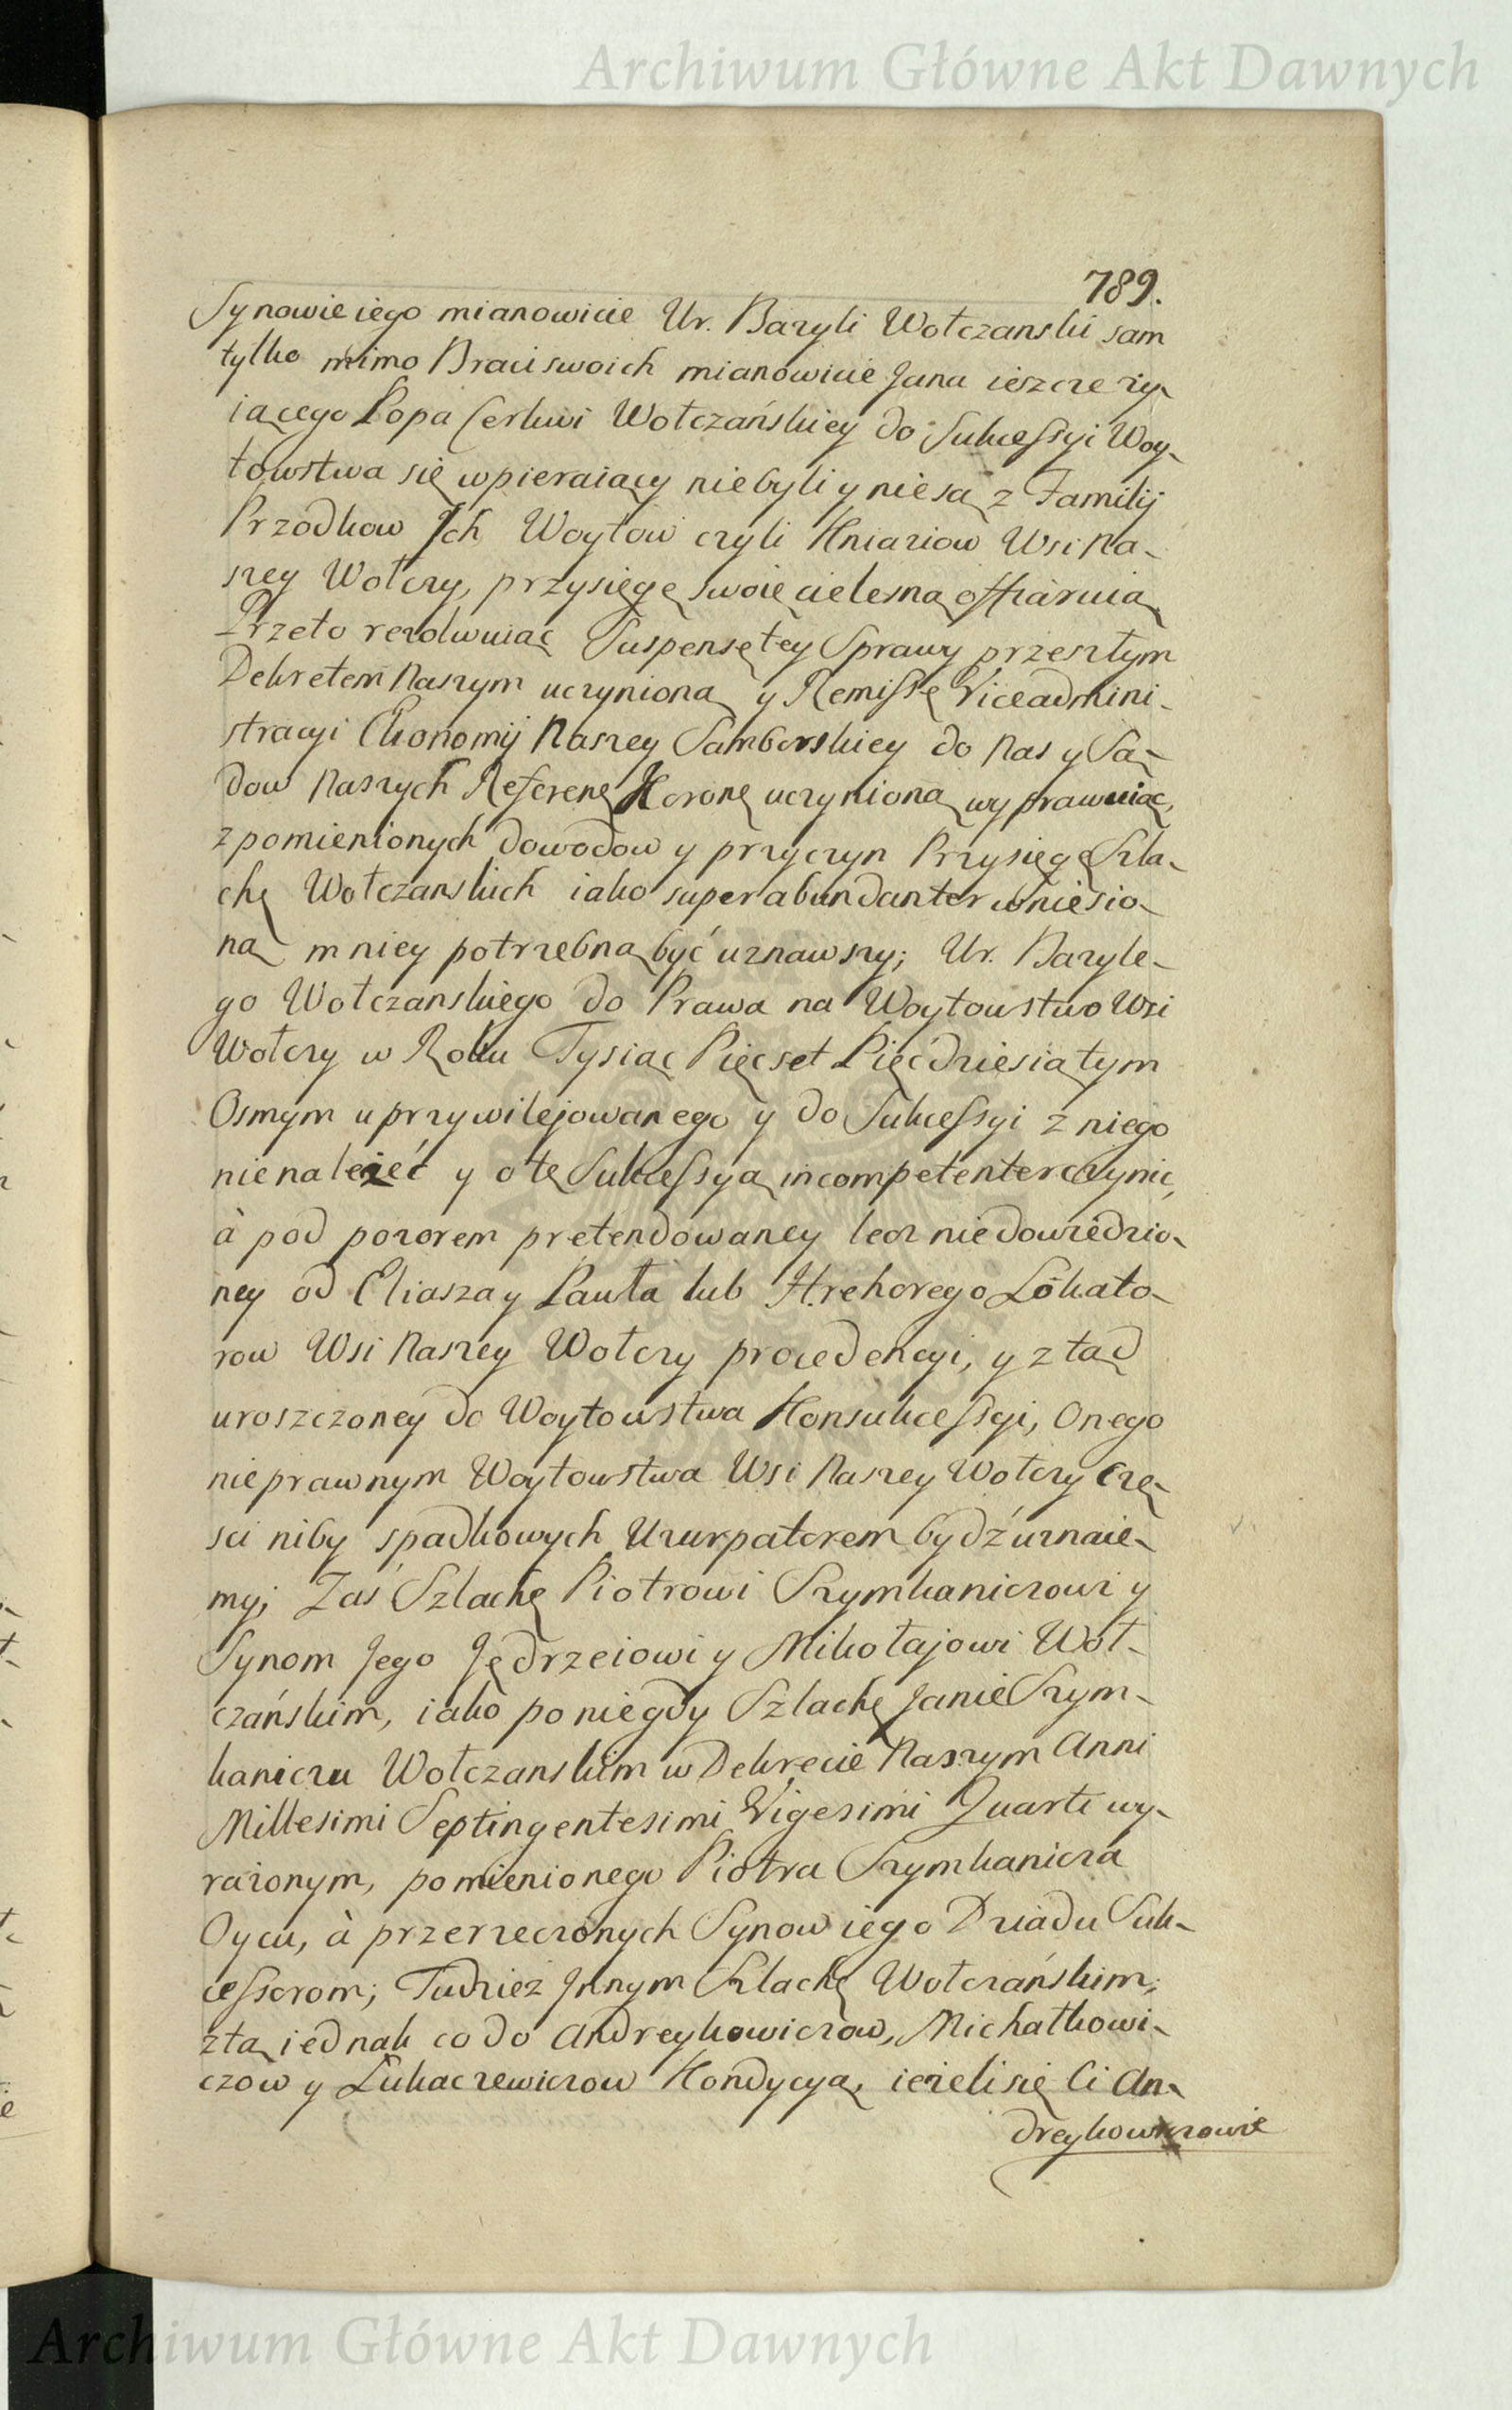 Archiwum Główne Akt Dawnych
789.
Synowie iego mianowicie Ur. Bazyli Wołczanski sam
tylko mimo Braci swoich mianowicie Jana ieszcze ży-
iącego Popa Cerkwi Wołczańskiey do Sukcessyi Woy-
towstwa się wpieraiący niebyli y niesą z Familij
Przodkow Ich Woytow czyli Kniaziow Wsi Na-
szey Wołczy, przysięgę swoię cielesną offiaruią
Przeto rezolwuiąc Suspensę tey Sprawy przeszłym
Dekretem Naszym uczynioną y Remissę Viceadmini-
stracyi Ekonomij Naszey Samborskiey do Nas y Są-
dow Naszych Referen Koronę uczynioną wyprawuiąc,
z pomienionych dowodow y przyczyn Przysięgę Szla-
chę Wołczanskich iako superabundanter wniesio-
ną mniey potrzebną być uznawszy; Ur. Bazyle-
go Wołczanskiego do Prawa na Woytowstwo Wsi
Wołczy w Roku Tysiąc Pięcset Pięćdziesiątym
Osmym uprzywilejowanego y do Sukcessyi z niego
nienależeć y o tę Sukcessyą incompetenter czynic,
à pod pozorem pretendowaney lecz niedowiedzio-
ney od Eliasza y Pauła lub Hrehorego Lokato-
row Wsi Naszey Wołczy procedencyi, y z tąd
uroszczoney do Woytowstwa Konsukcessyi, Onego
nieprawnym Woytowstwa Wsi Naszey Wołczy Czę-
sci niby spadkowych Uzurpatorem bydź uznaie-
my; Zaś Szlachę Piotrowi Szymkaniczowi y
Synom Jego Jędrzeiowi y Mikołajowi Woł-
czańskim, iako po niegdy Szlachę Janie Szym-
kaniczu Wołczanskim w Dekrecie Naszym Anni
Millesimi Septingentesimi Vigesimi Quarti wy-
rażonym, pomienionego Piotra Szymkanicza
Oycu, à przerzeczonych Synow iego Dziadu Suk-
cessorom; Tudzież Innym Szlachę Wołczańskim;
z tą iednak co do Andreykowiczow, Michałkowi-
czow y Łukaczewiczow Kondycyą, ieżeli się Ci An-
dreykowiczowie
Archiwum Główne Akt Dawnych